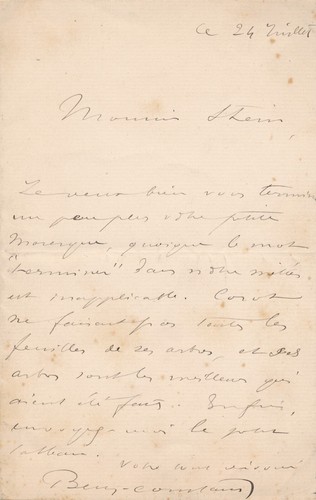 ce 24 Juillet
Monsieur Stein,
Je veux bien vous terminer
un peu plus votre petite
Marocque, quoique le mot
"terminer" dans notre métier
est inapplicable. Corot
ne faisant pas toutes les
feuilles de ses arbres, et ses
arbres sont les meilleurs qui
aient été faits. Enfin,
envoyez-moi le petit
tableau.
Votre tout dévoué
Benj-Constant